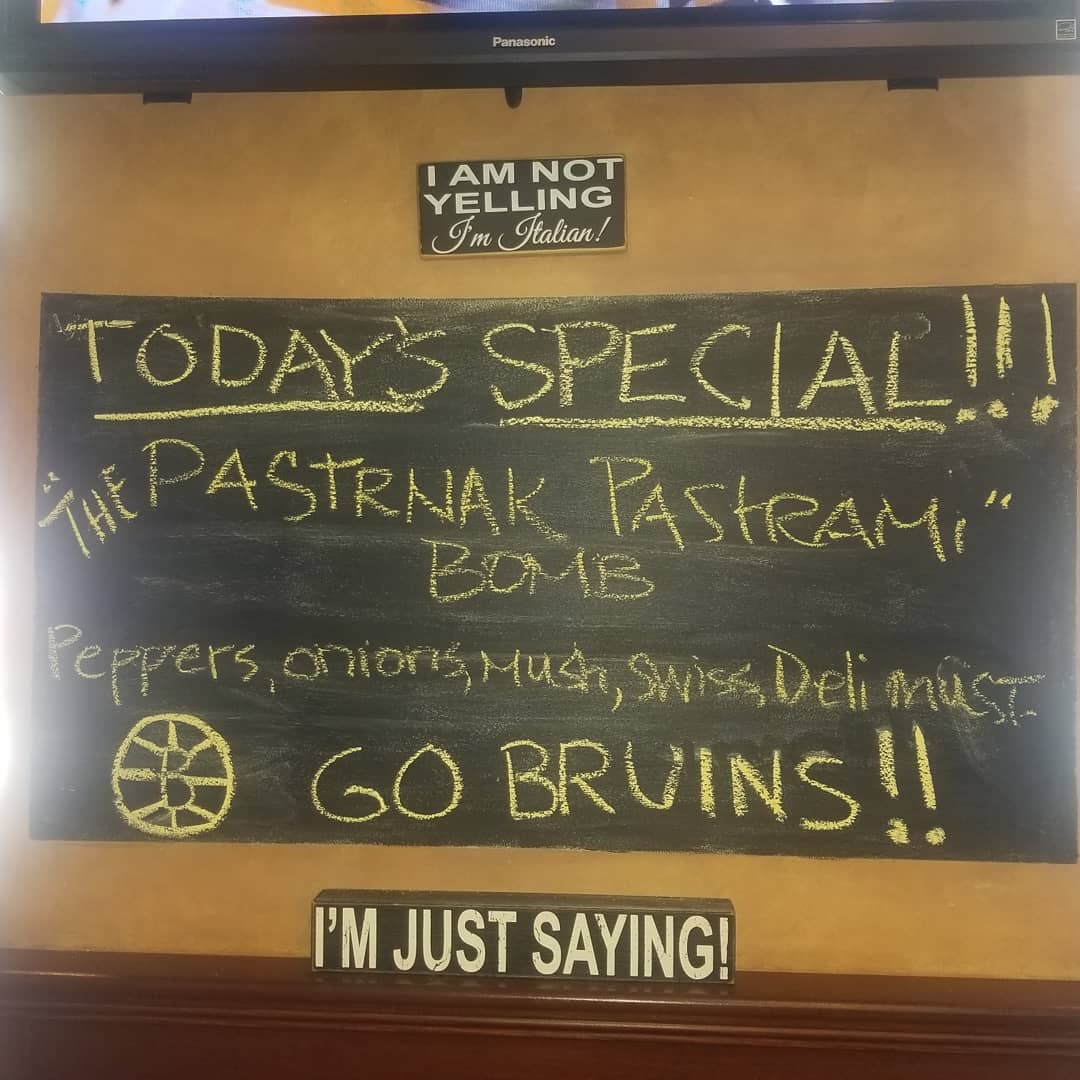 Panasonic
I AM NOT
YELLING
I'm Italian!
TODAY'S SPECIAL!!!
"THE PASTRNAK PASTRAMI"
BOMB
Peppers, onions, Mush, Swiss, Deli must
B
GO BRUINS!!
I'M JUST SAYING!